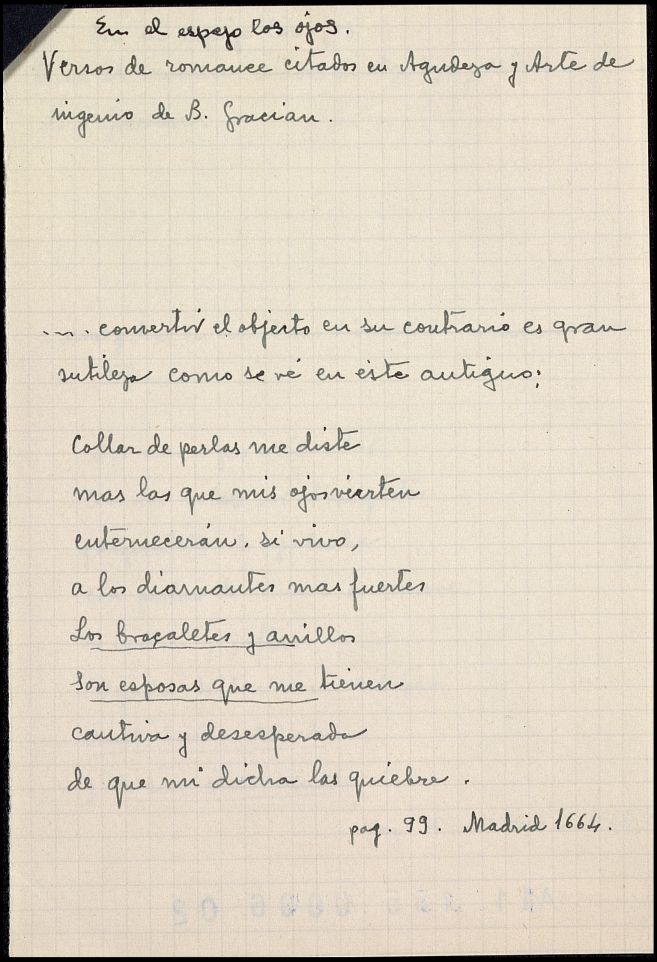 En el espejo los ojos.
Versos de romance citados en Agudeza y Arte de
ingenio de B. Gracian.
.... convertir el objecto en su contrario es gran
sutileza como se vé en éste antiguo;
Collar de perlas me diste
mas las que mis ojos vierten
enternecerán, si vivo,
a los diamantes mas fuertes
Los braçaletes y anillos
Son esposas que me tienen
cautiva y desesperada
de que mi dicha las quiebre.
pag. 99. Madrid 1664.